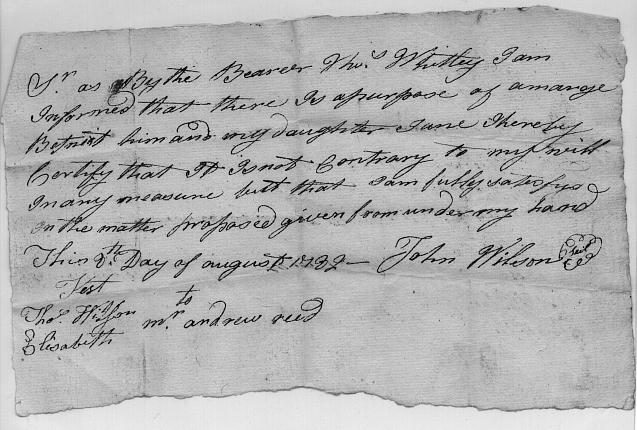 Sr as By the Bearer Thos Whitley I am
Informed that there Is a purpose of a marage
Betwixt him and my daughter Jane I hereby
Certify that It Is not Contrary to my will
In any measure but that I am fully satesfyd
in the matter proposed given from under my hand
This 8th Day of august 1782 — John Wilson Seal
Test
Thos Willson
Elisabeth
to
mr andrew reed